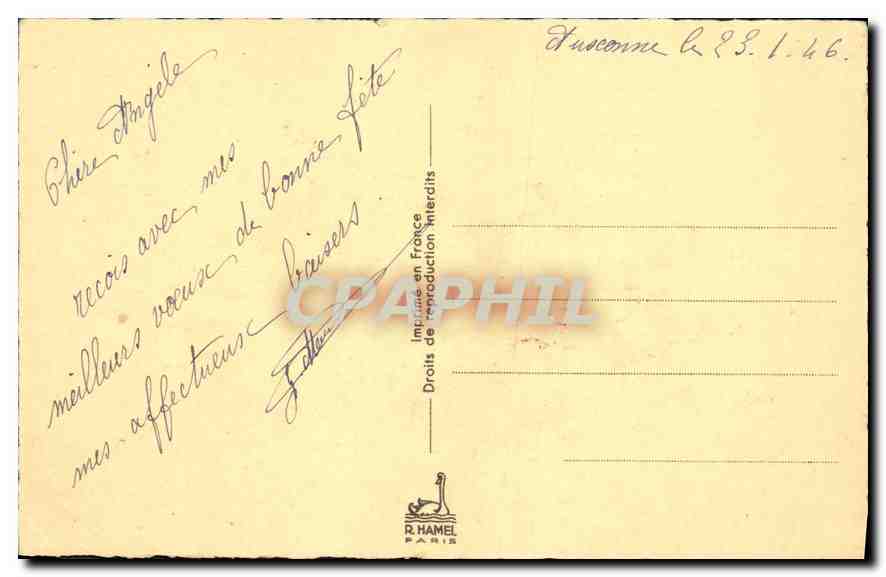 le 23.1.46.
Chère Angèle
reçois avec mes
meilleurs vœux de bonne fête
mes affectueux baisers.
Imprimé en France
Droits de reproduction interdits
CPAPHIL
R. HAMEL
PARIS